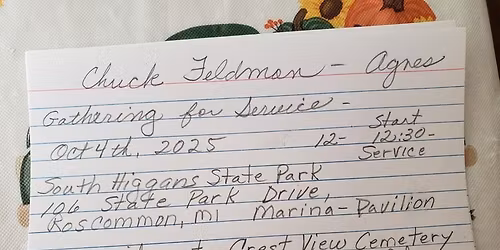 Chuck Feldman - Agnes
Gathering for Service -
Oct 4th, 2025 12- Start 12:30- Service
South Higgans State Park
106 State Park Drive,
Roscommon, MI Marina-Pavilion
Crest View Cemetery